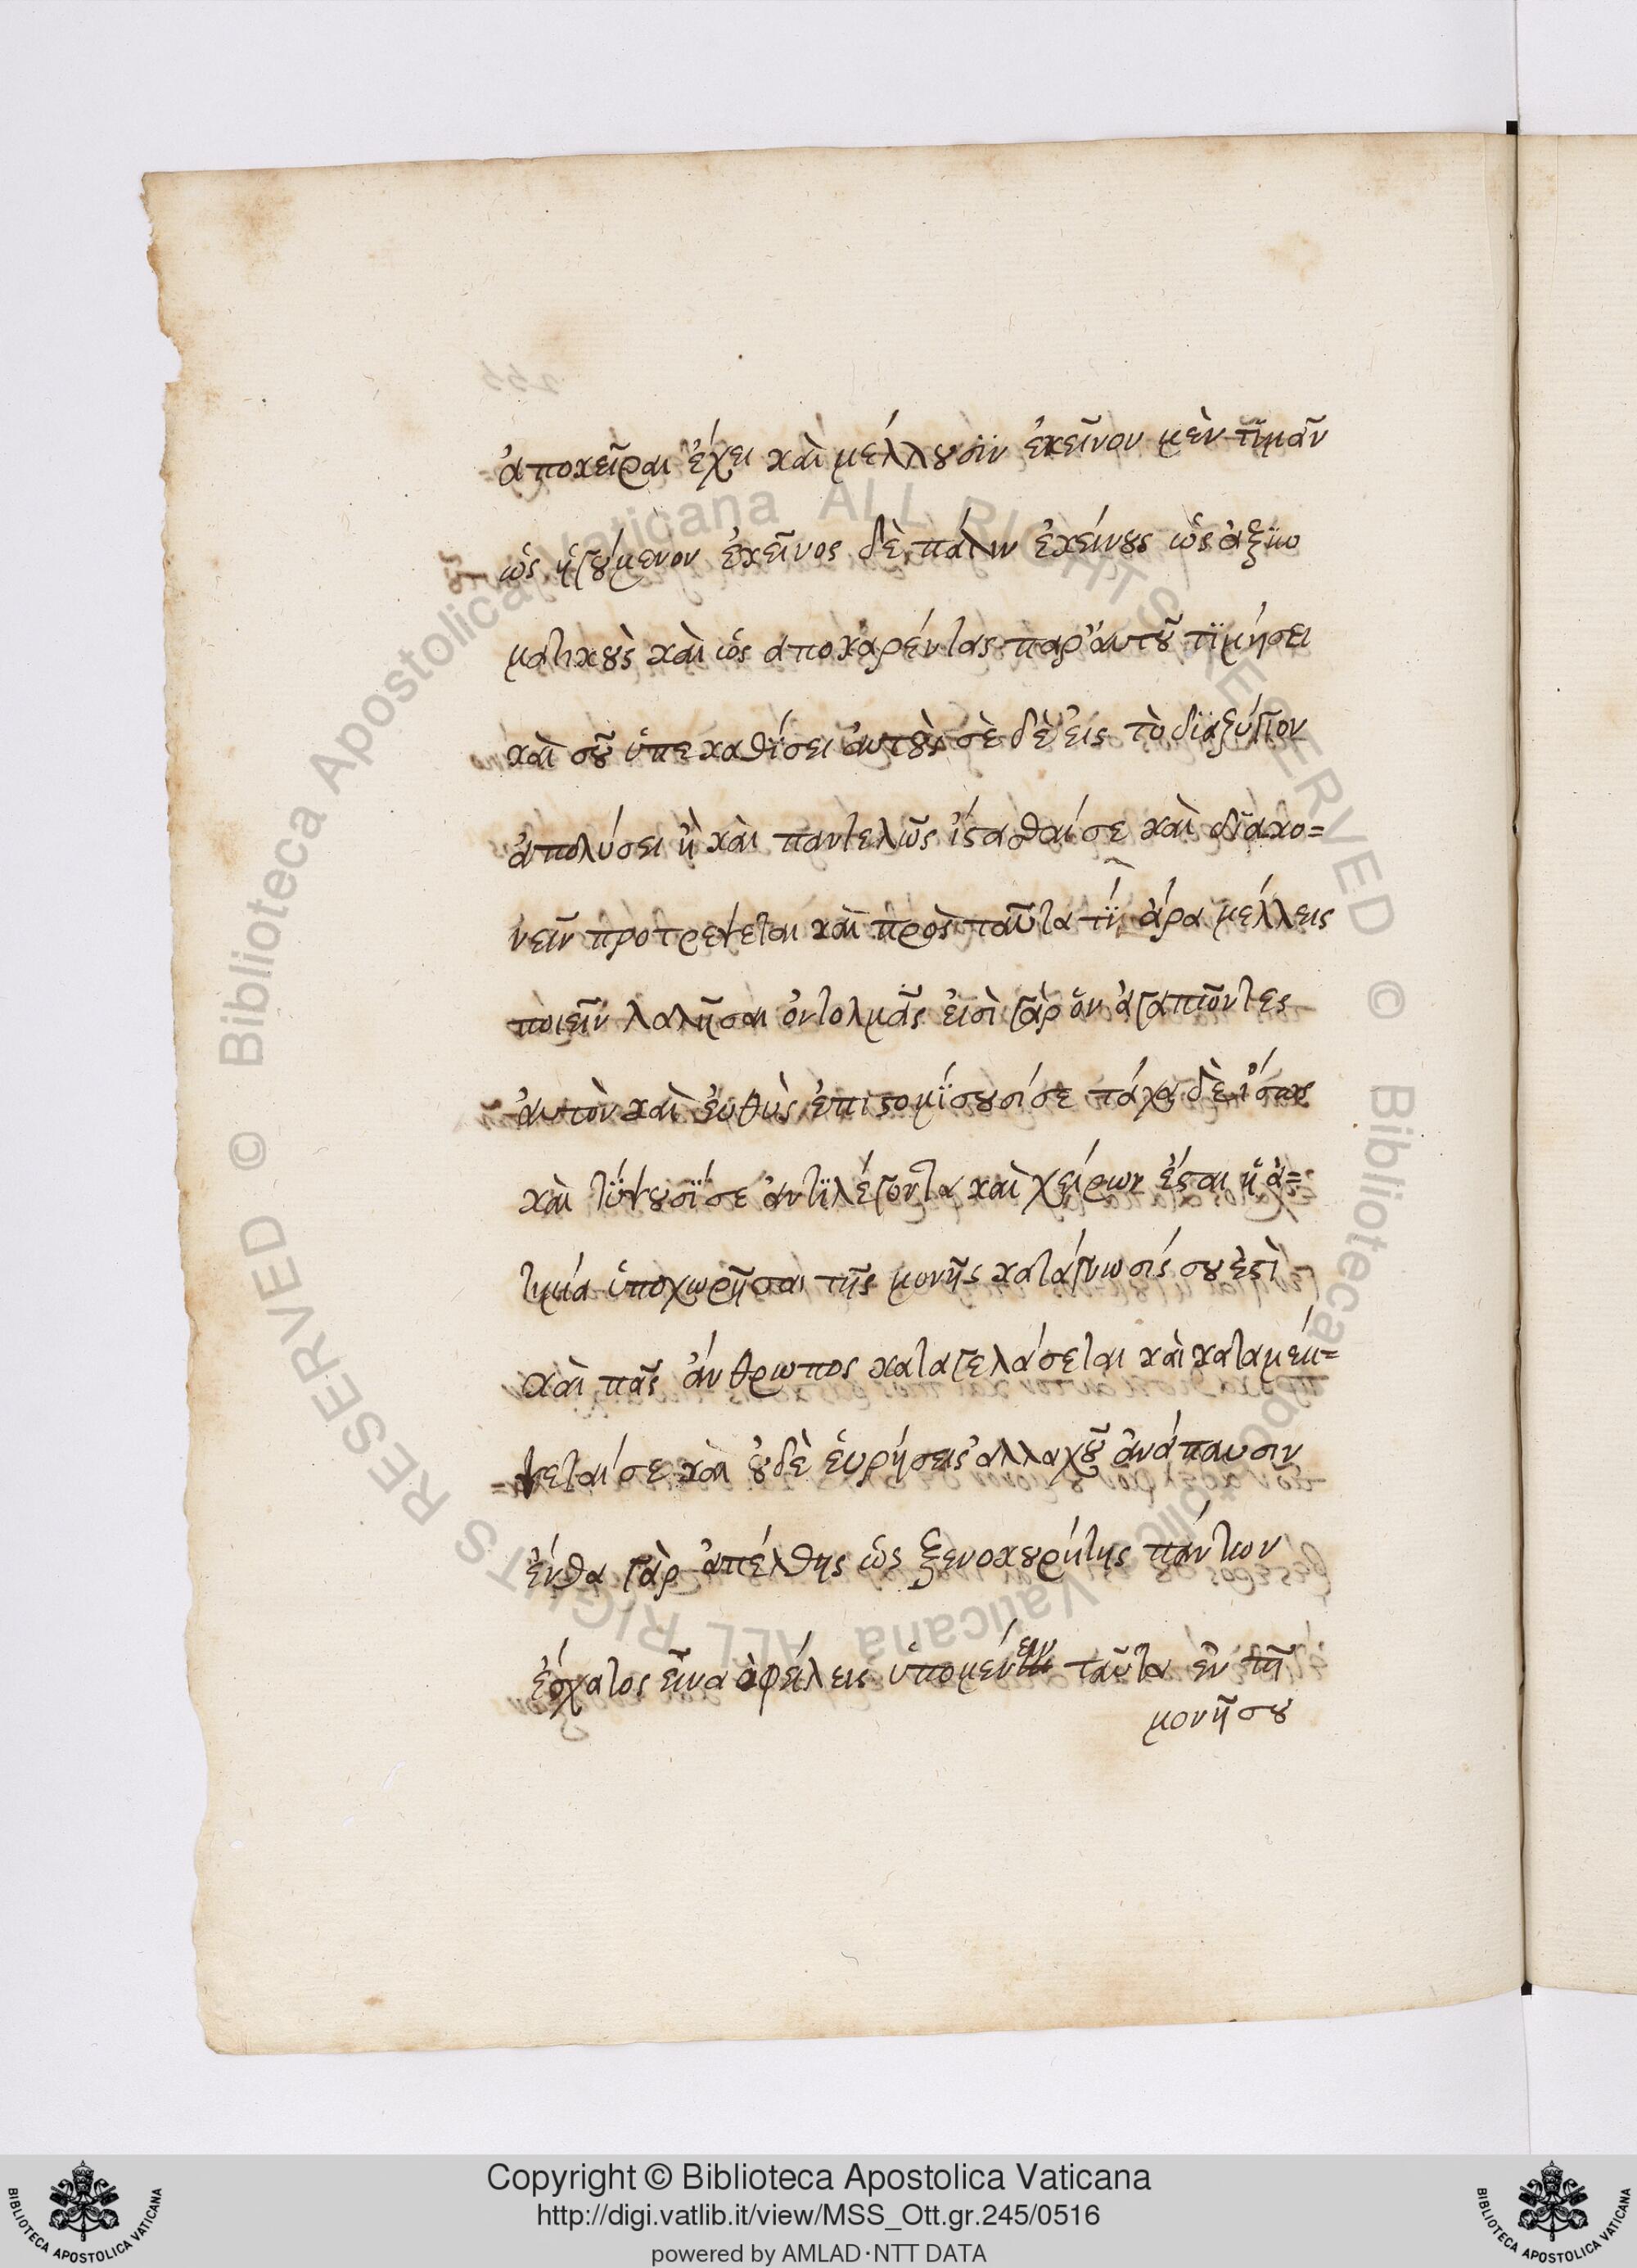 ἀποκεῖραι ἔχει καὶ μέλλουσϊν ἐκεῖνον μὲν τϊμᾶν
ὡς ἡγούμενον ἐκεῖνος δὲ πάλιν ἐκείνους ὡς ἀξϊω
ματικοὺς καὶ ὡς αποκαρέντας παρ' ἀυτοῦ τϊμήσει
καὶ σοῦ ὑπεκαθΐσει ἀυτοὺς σὲ δὲ ἐις τὸ δϊαζύγϊον
ἀπολύσει ἢ καὶ παντελῶς ἵστασθαί σε καὶ δϊακο=
νεῖν προτρέψεται καὶ πρὸς ταῦτα τΐ ἄρα μέλλεις
ποιεῖν λαλῆσαι ὀυ τολμᾶς ἐισὶ γὰρ ὁι ἀγαπῶντες
ἀυτὸν καὶ ἐυθὺς ἐπιστομΐσουσί σε τάχα δὲ ἴσως
καὶ τΰψουσΐ σε ἀντϊλέγοντα καὶ χείρων ἔσται ἡ ἀ=
τιμία ὑποχωρῆσαι τῆς μονῆς κατάγνωσίς σου ἐστὶ
καὶ πᾶς ἄνθρωπος καταγελάσεται καὶ καταμέμ=
ψεταί σε καὶ ὀυδὲ ἑυρήσεις ἀλλαχοῦ ἀνάπαυσιν
ἔνθα γὰρ ἀπέλθης ὡς ξενοκουρίτης πάντων
ἔσχατος εἶναι ὀφείλεις ὑπομένειν ταῦτα ἐν τῆ
μονῆ σου
Copyright © Biblioteca Apostolica Vaticana
http://digi.vatlib.it/view/MSS_Ott.gr.245/0516
powered by AMLAD·NTT DATA